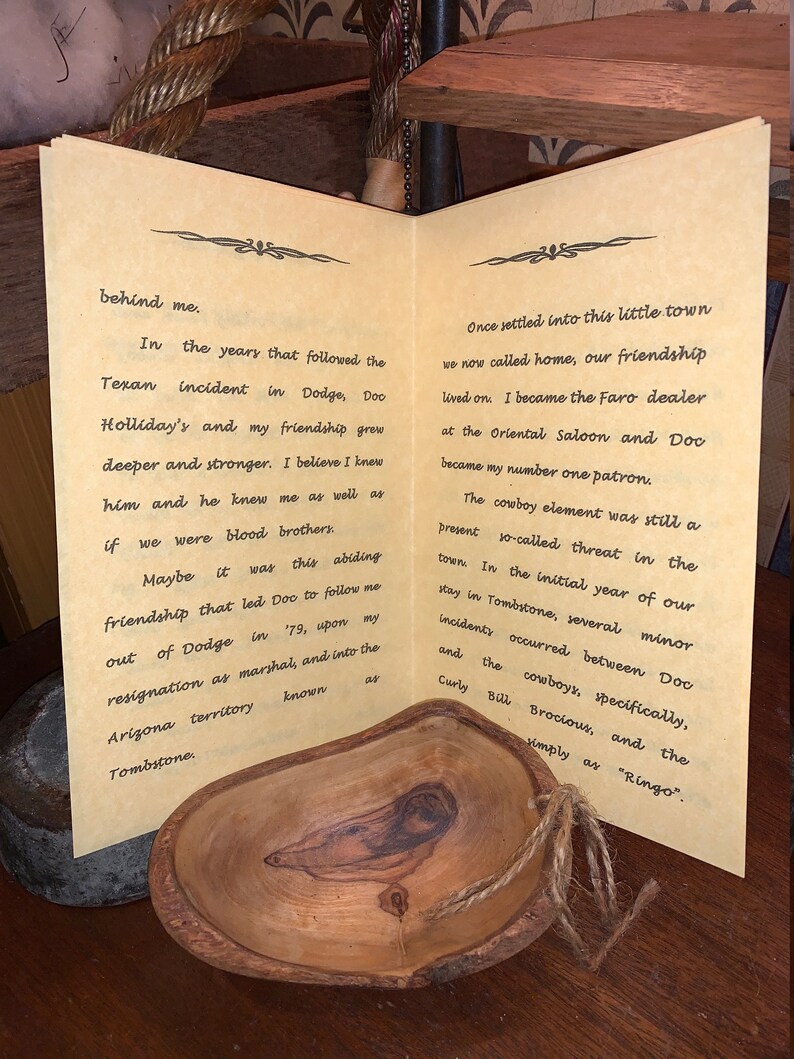 behind me.
In the years that followed the
Texan incident in Dodge, Doc
Holliday's and my friendship grew
deeper and stronger. I believe I knew
him and he knew me as well as
if we were blood brothers.
Maybe it was this abiding
friendship that led Doc to follow me
out of Dodge in '79, upon my
resignation as marshal, and into the
Arizona territory known as
Tombstone.
Once settled into this little town
we now called home, our friendship
lived on. I became the Faro dealer
at the Oriental Saloon and Doc
became my number one patron.
The cowboy element was still a
present so-called threat in the
town. In the initial year of our
stay in Tombstone, several minor
incidents occurred between Doc
and the cowboys, specifically,
Curly Bill Brocious, and the
simply as "Ringo".